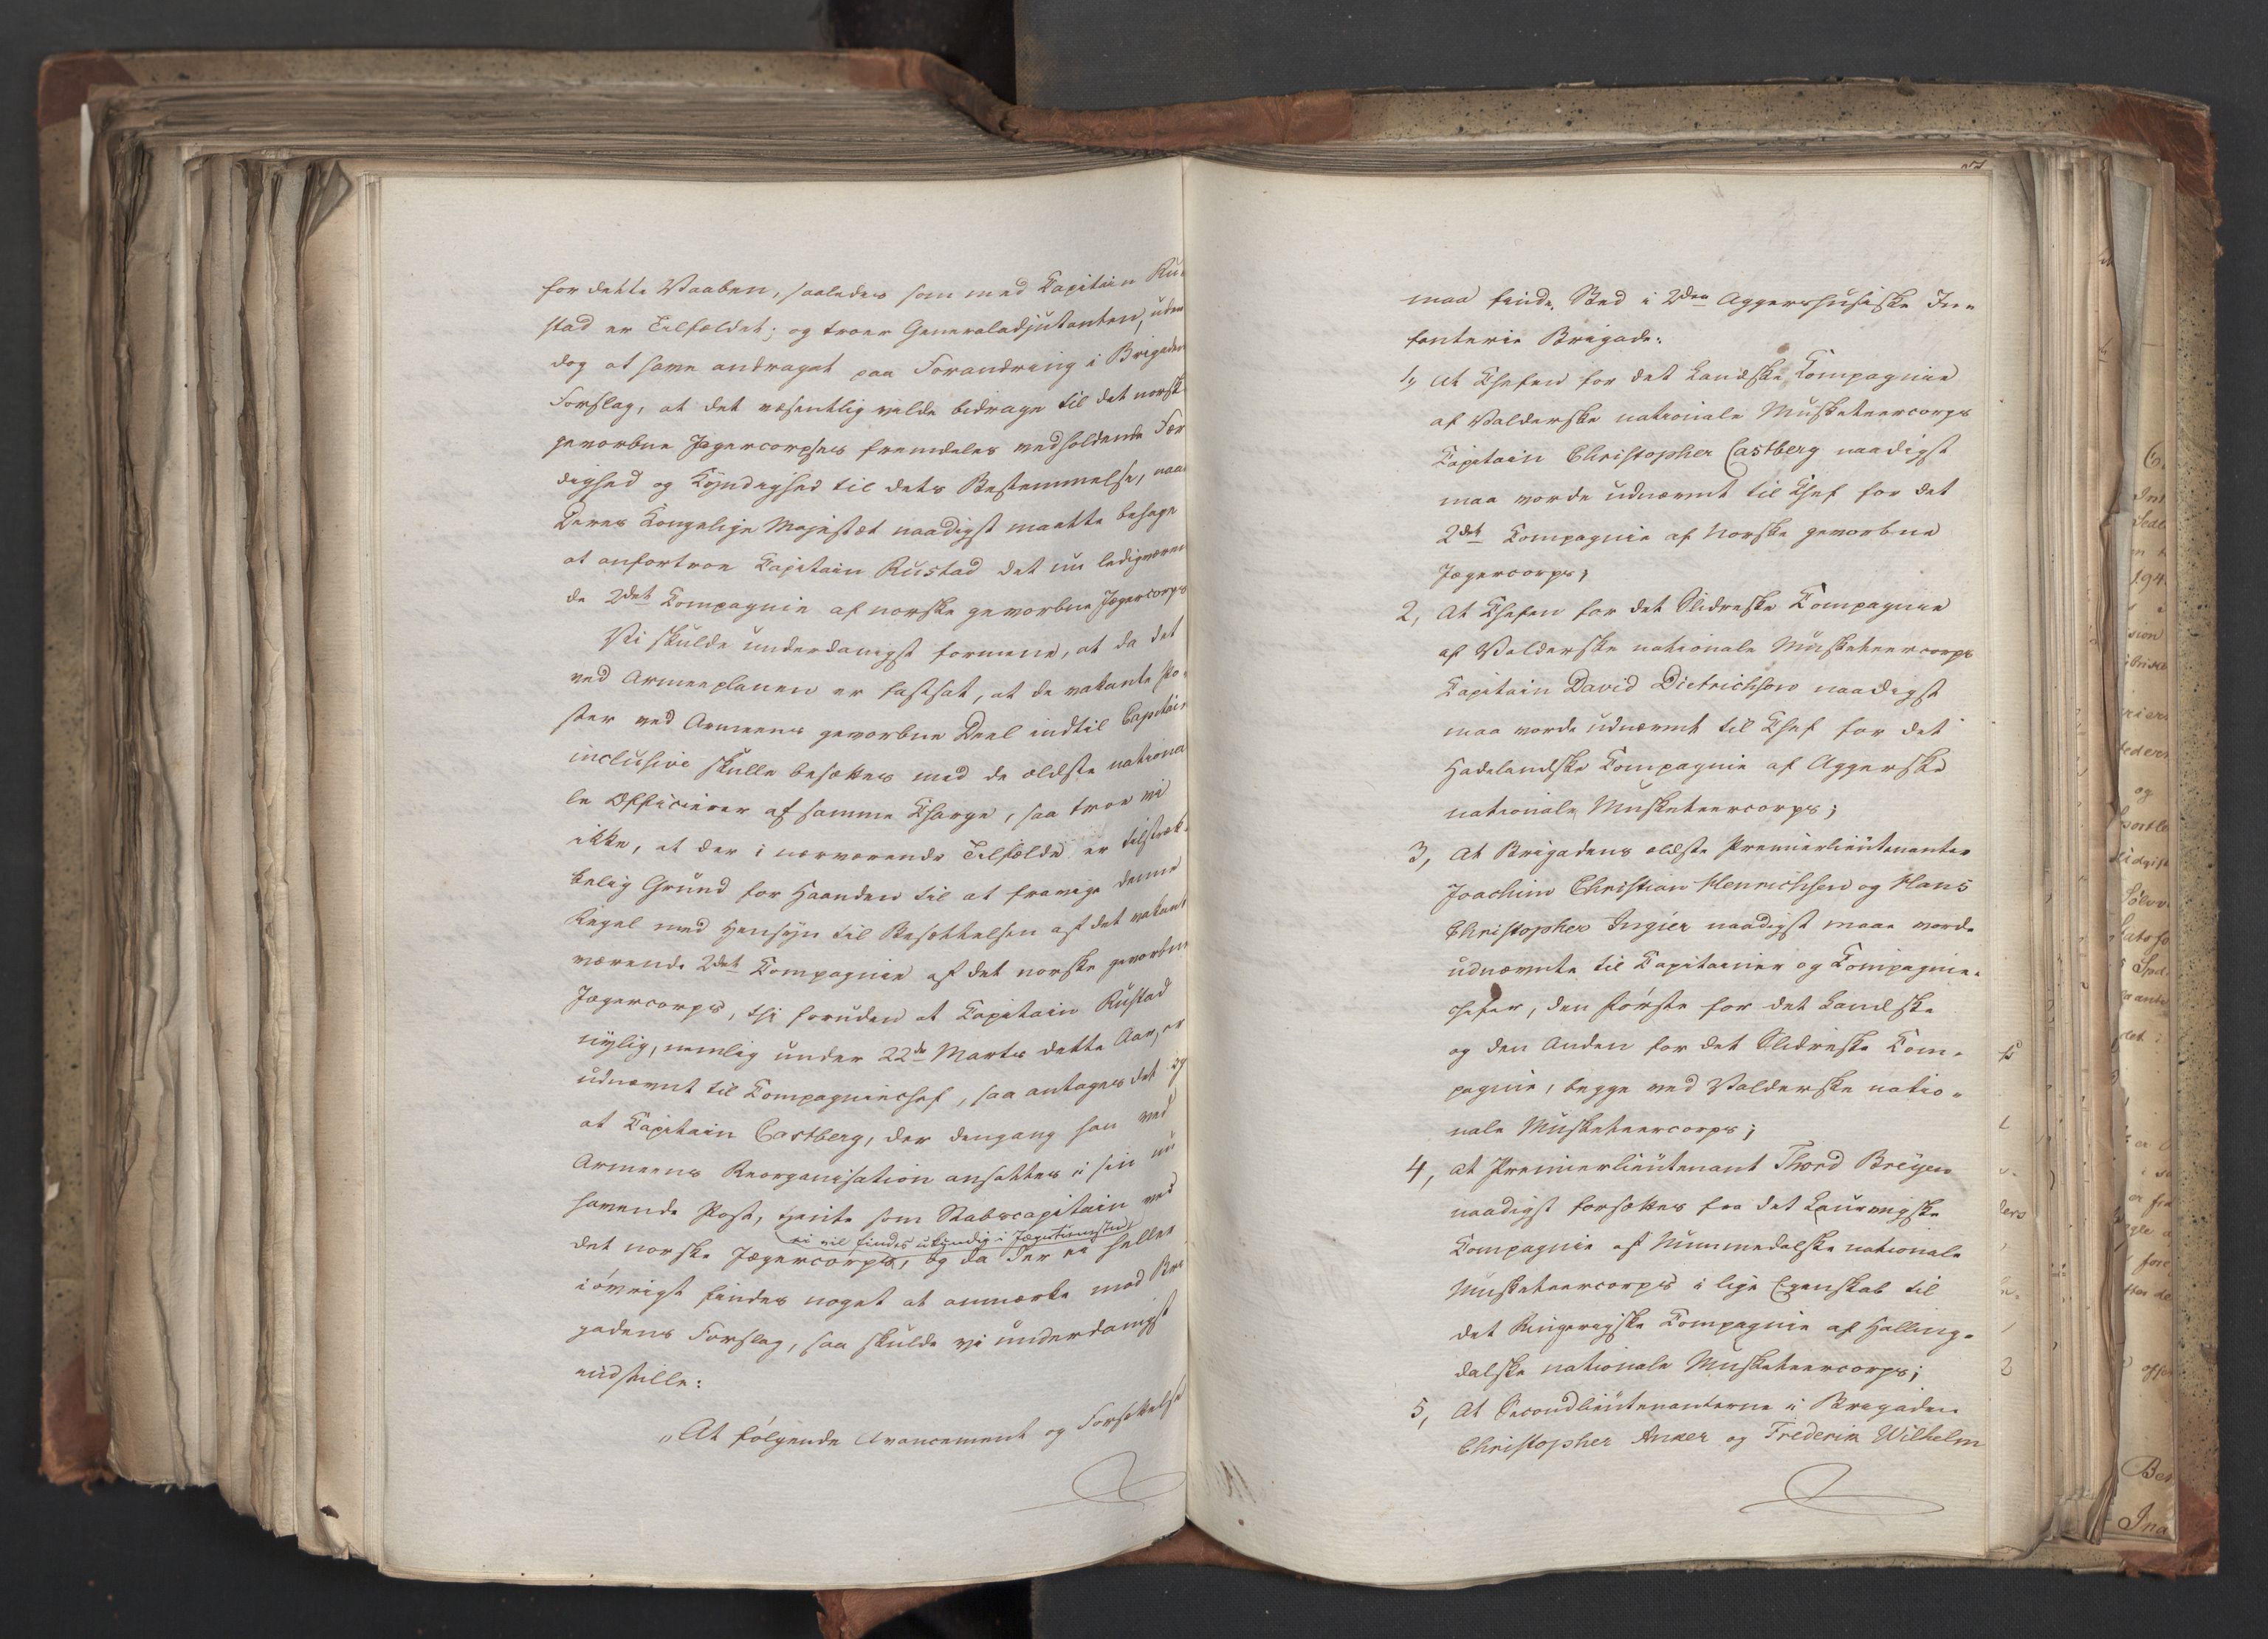 for dette Vaaben, saaledes som med Capitain Ru-
stad er Tilfældet; og troer Generaladjutanten, uden
dog at have andraget paa Forandring i Brigaden
Forslag, at det væsentlig vilde bidrage til det norske
gevorbne Jægercorpses fremdeles vedholdende Fær
dighed og Kyndighed til dets Bestemmelse, naar
Deres Kongelige Majestæt naadigst maatte behage
at anfortroe Capitain Rustad det nu ledigværen
de 2det Compagnie af norske gevorbne Jægercorps
Vi skulde underdanigst formene, at da det
ved Armeeplanen er fastsat, at de vakante Po-
ster ved Armeens gevorbne Deel indtil Capitain
inclusive skulle besættes med de ældste nationa
le Officierer af samme Charge, saa troe vi
ikke, at der i nærværende Tilfælde er tilstræk-
kelig Grund for Haanden til at fravige denne
Regel med Hensyn til Besættelsen af det vakant
værende 2det Compagnie af det norske gevorbne
Jægercorps, thi foruden at Capitain Rustad
nylig, nemlig under 22de Marts dette Aar, er
udnævnt til Compagniechef, saa antages det ej
at Capitain Castberg, der dengang han ved
Armeens Reorganisation ansattes i sin nu
havende Post, tjente som Stabscapitain ved
ei vil findes ukyndig i Jægertienesten
det norske Jægercorps, og da der ei heller
iøvrigt findes noget at anmærke mod Bri
gadens Forslag, saa skulde vi underdanigst
indstille:
"At følgende Avancement og Forsættelse
maa finde Sted i 2den Aggershusiske In-
fanterie Brigade:
1, at Chefen for det Landske Compagnie
af Valderske nationale Musketeercorps
Capitain Christopher Castberg naadigst
maa vorde udnævnt til Chef for det
2det Compagnie af Norske gevorbne
Jægercorps;
2, At Chefen for det Slidreske Compagnie
af Valderske nationale Musketeercorps
Capitain David Dietrichson naadigst
maa vorde udnævnt til Chef for det
Hadelandske Compagnie af Aggerske
nationale Musketeercorps;
3, At Brigadens ældste Premierlieutenanter
Joachim Christian Henrichsen og Hans
Christopher Ingier naadigst maae vorde
udnævnte til Capitainer og Compagnie-
chefer, den første for det Landske
og den Anden for det Slidreske Com-
pagnie, begge ved Valderske natio-
nale Musketeercorps;
4, at Premierlieutenant Thord Breyen
naadigst forsættes fra det Laurvigske
Compagnie af Nummedalske nationale
Musketeercorps i lige Egenskab til
det Ringerigske Compagnie af Halling-
dalske nationale Musketeercorps;
5, At Secondlieutenanterne i Brigaden
Christopher Anker og Frederik Wilhelm